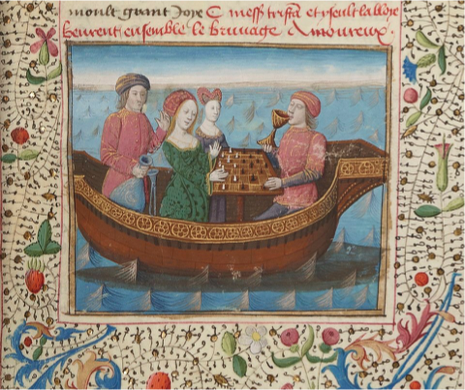 moult grant Joye C mess trista et yseult
beurent ensemble le bruuage Amoureux